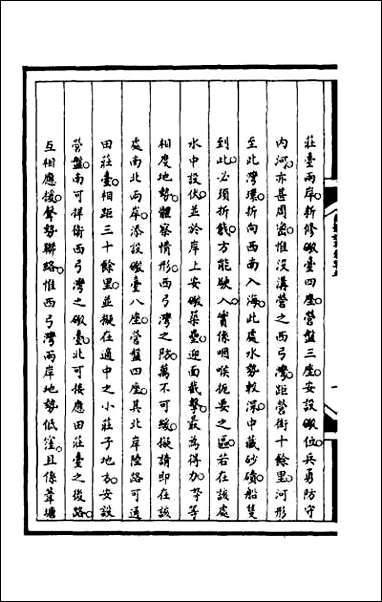 莊臺兩岸新修礮臺四座營盤三座安設礮位兵勇防守
內河亦甚周密惟沒溝營之西弓灣距營街十餘里河形
至此灣環折向西南入海此處水勢較深中藏砂磧船隻
到此必須折戧方能駛入實係咽喉扼要之區若在該處
水中設伏並於岸上安礮築壘迎面截擊最爲得力奴才等
相度地勢體察情形西弓灣之防萬不可緩擬請即在該
處南北兩岸添設礮臺八座營盤四座其北岸陸路可通
田莊臺相距三十餘里並擬在適中之小莊子地方安設
營盤南可拱衛西弓灣之礮臺北可接應田莊臺之後路
互相應援聲勢聯絡惟西弓灣兩岸地勢低窪且係葦塘